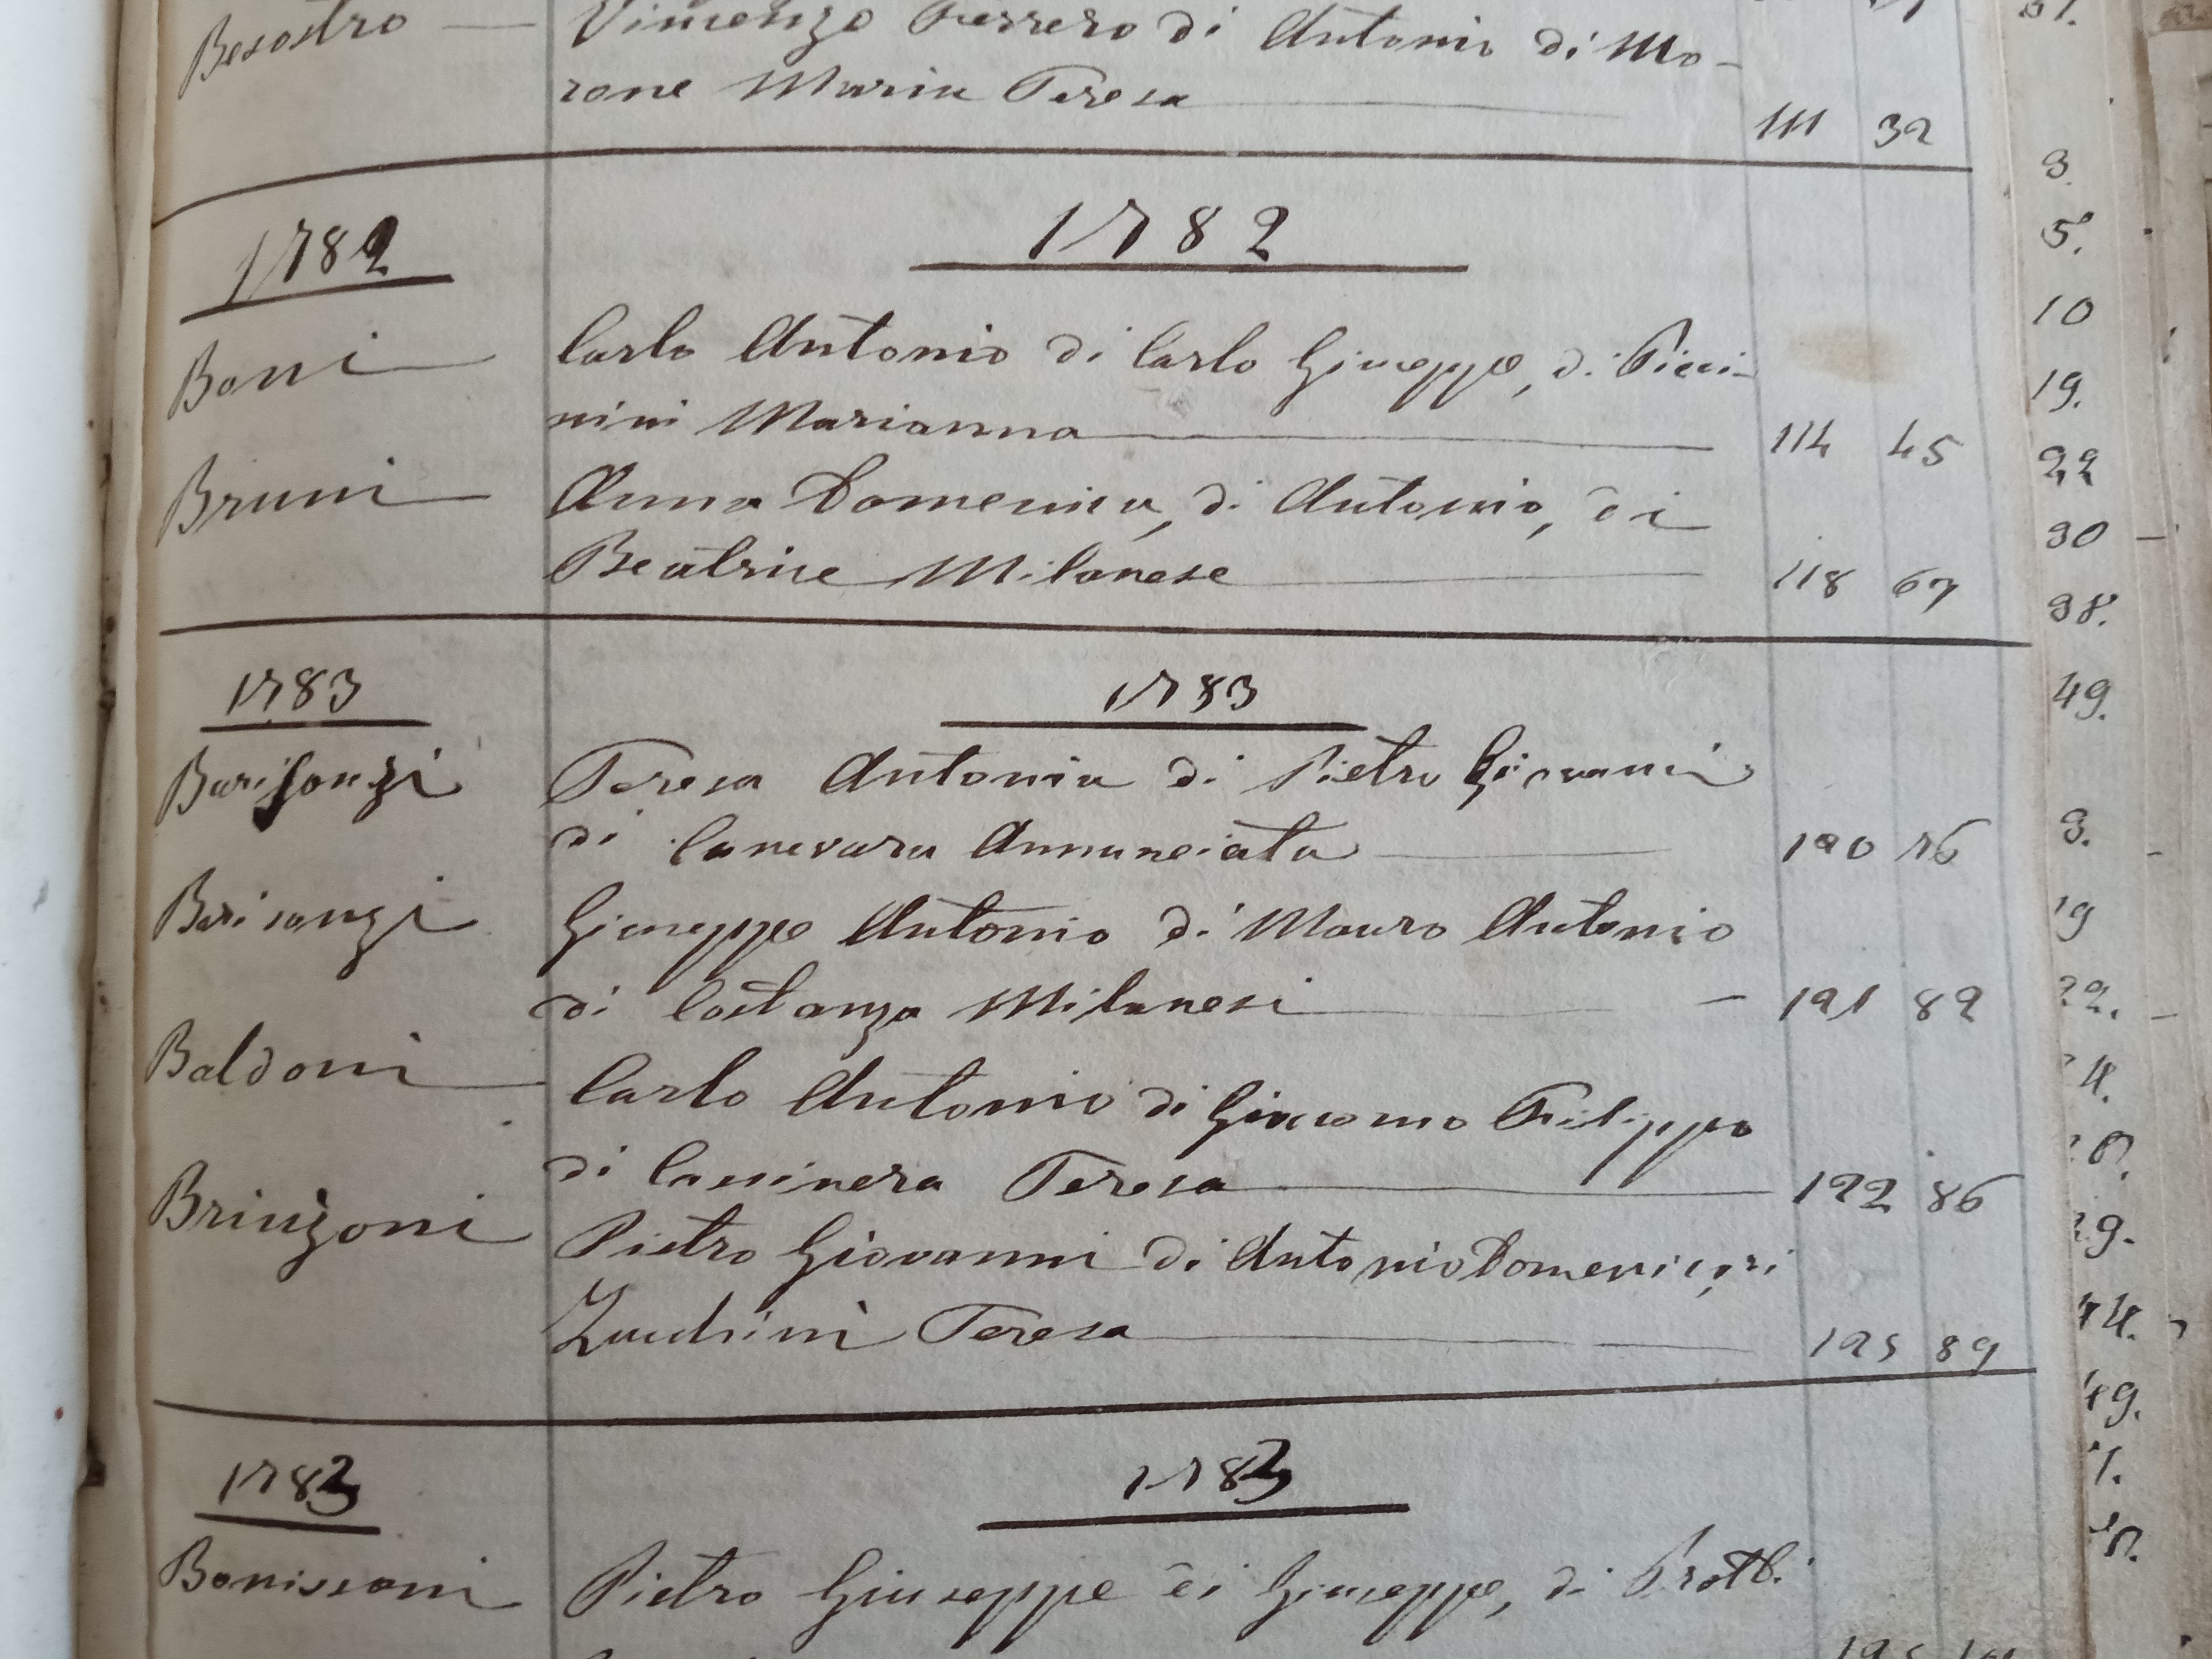 Besostro — Vincenzo Ferrero di Antonio di Mo-
rone Maria Teresa 111 32
1782 1782
Boni Carlo Antonio di Carlo Giuseppe, di Picci-
nini Marianna 114 45
Bruni Anna Domenica, di Antonio, di
Beatrice Milanese 118 67
1783 1783
Barisonzi Teresa Antonia di Pietro Giovanni
di Canevara Annunciata 120 76
Barisonzi Giuseppe Antonio di Mauro Antonio
di Costanza Milanesi — 121 82
Baldoni Carlo Antonio di Giacomo Filippo
di Cassinera Teresa 122 86
Brinzoni Pietro Giovanni di Antonio Domenico, di
Teresa 123 89
1783 1783
Bonissoni Pietro Giuseppe di Giuseppe, di
3.
5.
10
19.
22
30 —
38.
49.
3.
19
22. —
29.
44.
49.